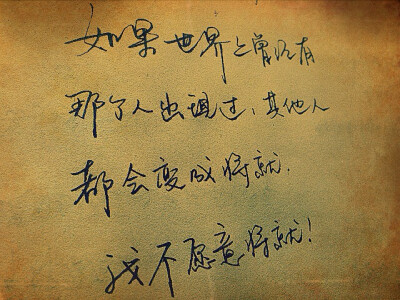 如果世界上曾经有
那个人出现过，其他人
都会变成将就．
我不愿意将就！